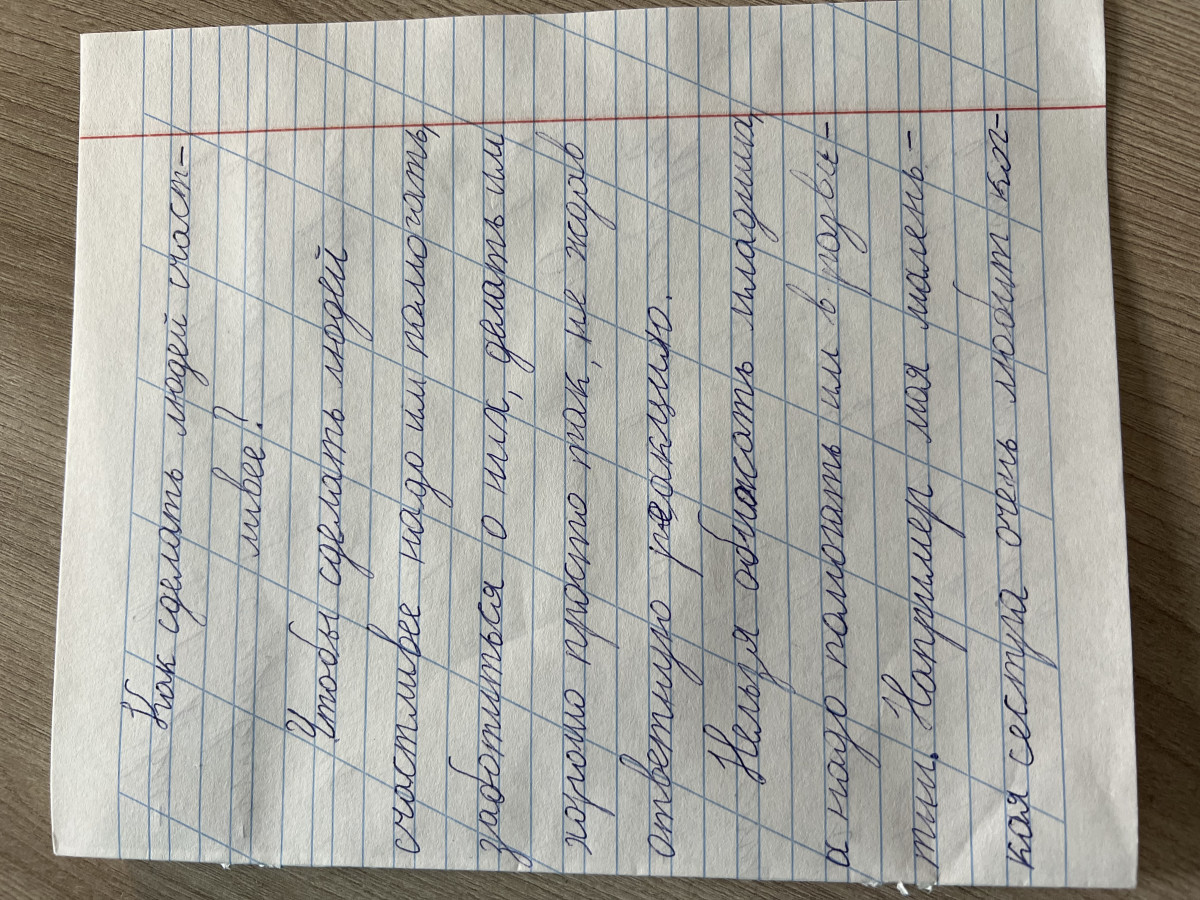 Как сделать людей счаст-
ливее?
Чтобы сделать людей
счастливее надо им помогать,
заботиться о них, делать им
хорошо просто так, не ждав
ответную реакцию.
Нельзя обижать младших,
а надо помогать им в разви-
тии. Например моя малень-
кая сестра очень любит ког-